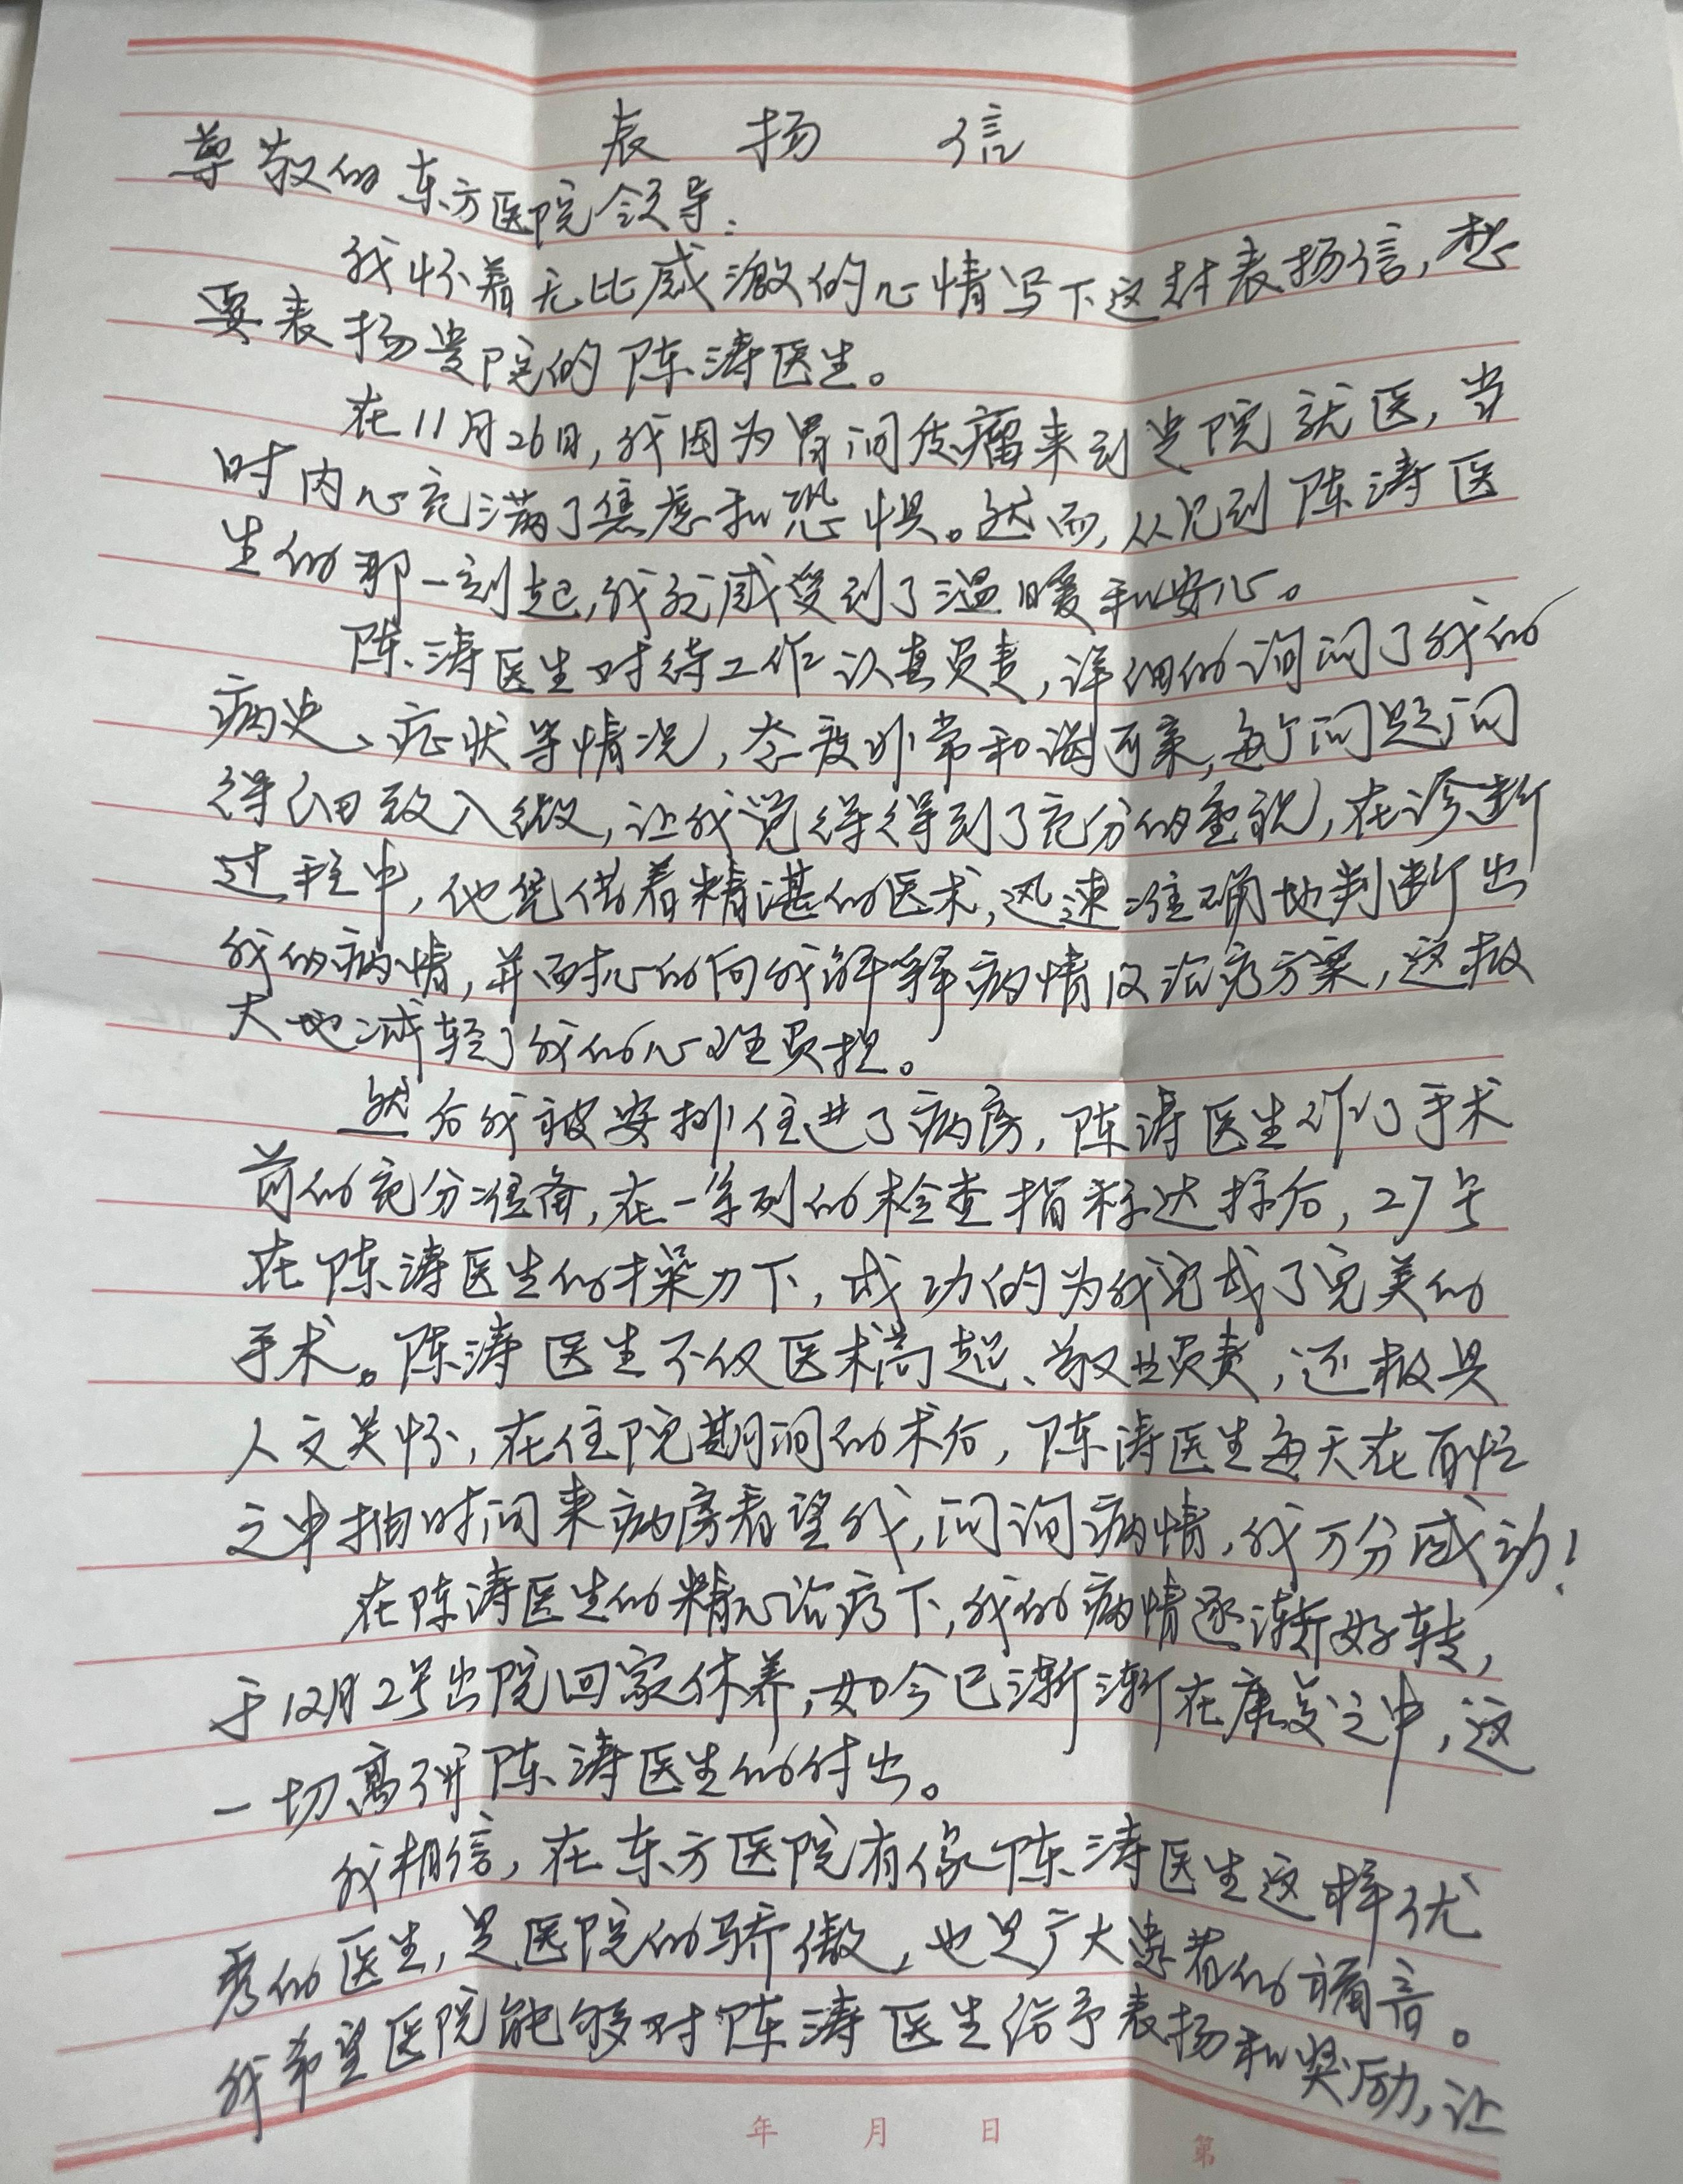 表扬信
尊敬的东方医院领导：
我怀着无比感激的心情写下这封表扬信，想
要表扬贵院的陈涛医生。
在11月26日，我因为胃间质瘤来到贵院就医，当
时内心充满了焦虑和恐惧。然而，从见到陈涛医
生的那一刻起，我就感受到了温暖和安心。
陈涛医生对待工作认真负责，详细的询问了我的
病史、症状等情况，态度非常和谐可亲，每个问题问
得细致入微，让我觉得得到了充分的重视，在诊断
过程中，他凭借着精湛的医术，迅速准确地判断出
我的病情，并耐心的向我解释病情及治疗方案，这极
大地减轻了我的心理负担。
然后我被安排住进了病房，陈涛医生作了手术
前的充分准备，在一系列的检查指标达标后，27号
在陈涛医生的操刀下，成功的为我完成了完美的
手术。陈涛医生不仅医术高超、敬业负责，还极具
人文关怀，在住院期间的术后，陈涛医生每天在百忙
之中抽时间来病房看望我，问询病情，我万分感动！
在陈涛医生的精心治疗下，我的病情逐渐好转，
于12月2号出院回家休养，如今已渐渐在康复之中，这
一切离不开陈涛医生的付出。
我相信，在东方医院有像陈涛医生这样优
秀的医生，是医院的骄傲，也是广大患者的福音。
我希望医院能够对陈涛医生给予表扬和奖励，让
年 月 日 第